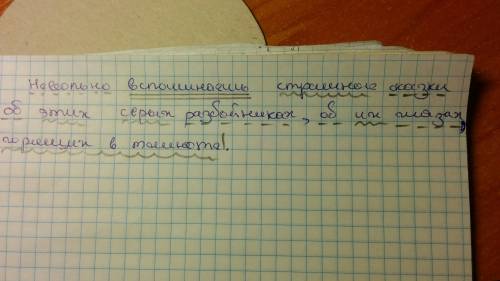 Невольно вспоминаешь страшные сказки
об этих серых разбойниках, об их глазах,
горящих в темноте.